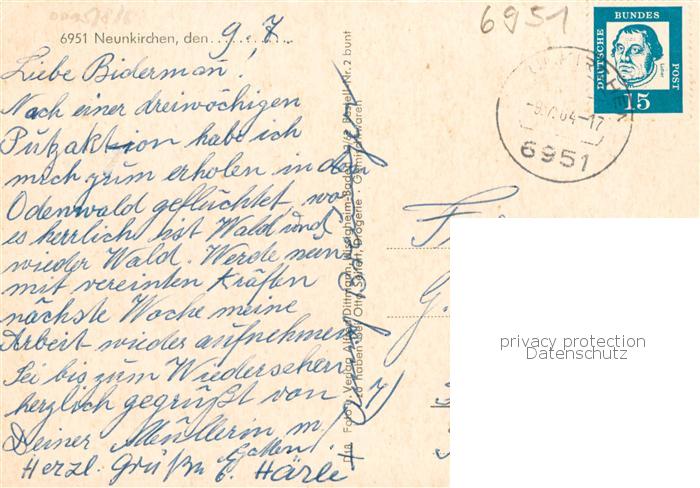 6951
6951 Neunkirchen, den 9.7.
Liebe Biderman!
Nach einer dreiwöchigen
Putzaktion habe ich
mich zum erholen in den
Odenwald geflüchtet, wo
es herrlich ist Wald und
wieder Wald. Werde nun
mit vereinten Kräften
nächste Woche meine
Arbeit wieder aufnehmen
Sei bis zum Wiedersehen
herzlich gegrüßt von
Deiner Müllerin m.
Herzl. Grüße E. Härle
D18 Foto u. Verlag Dittmann, Baden Bestell-Nr. 2 bunt
zu haben bei Otto Seifert, Drogerie - Gemischtwaren
DEUTSCHE BUNDES POST
Luther
15
-9.7.64-17
6951
privacy protection
Datenschutz